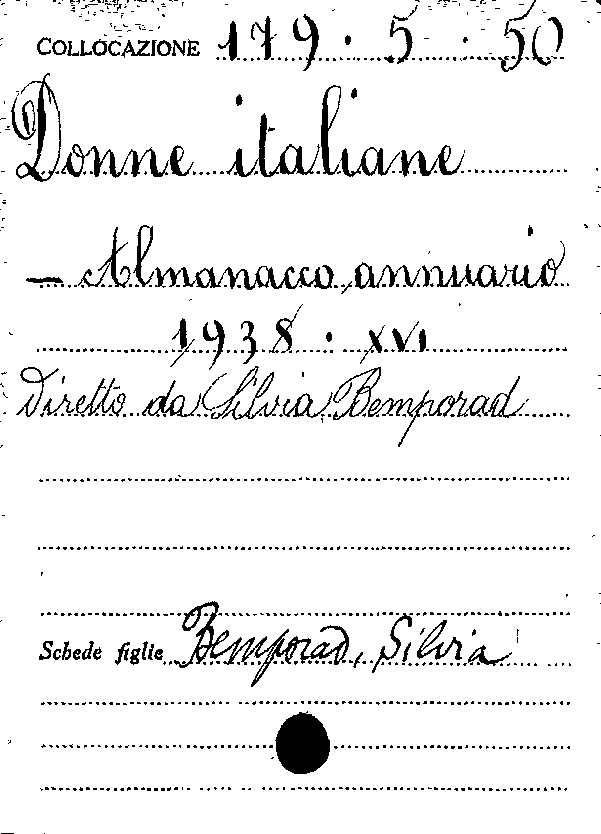 COLLOCAZIONE 179.5.50
Donne italiane
— Almanacco annuario
1938. XVI
Diretto da Silvia Bemporad
Schede figlie Bemporad, Silvia